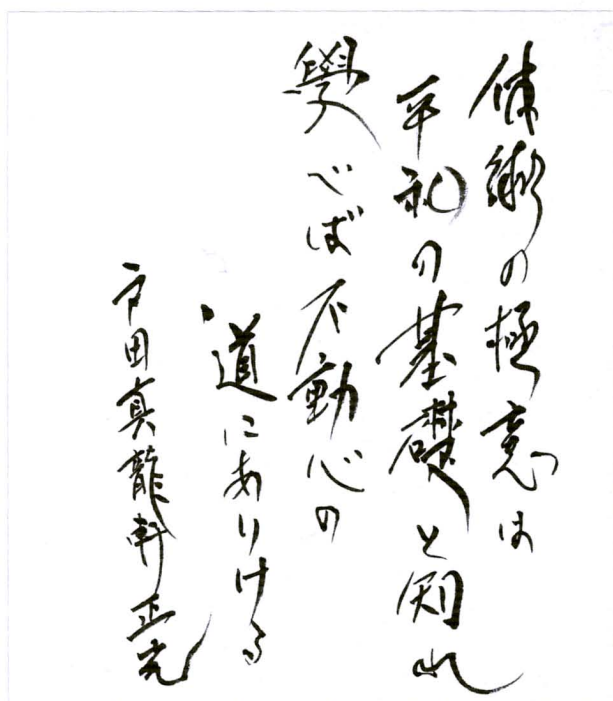 体術の極意は
平和の基礎と知れ
學べば不動心の
道にありける
戸田真龍軒正光